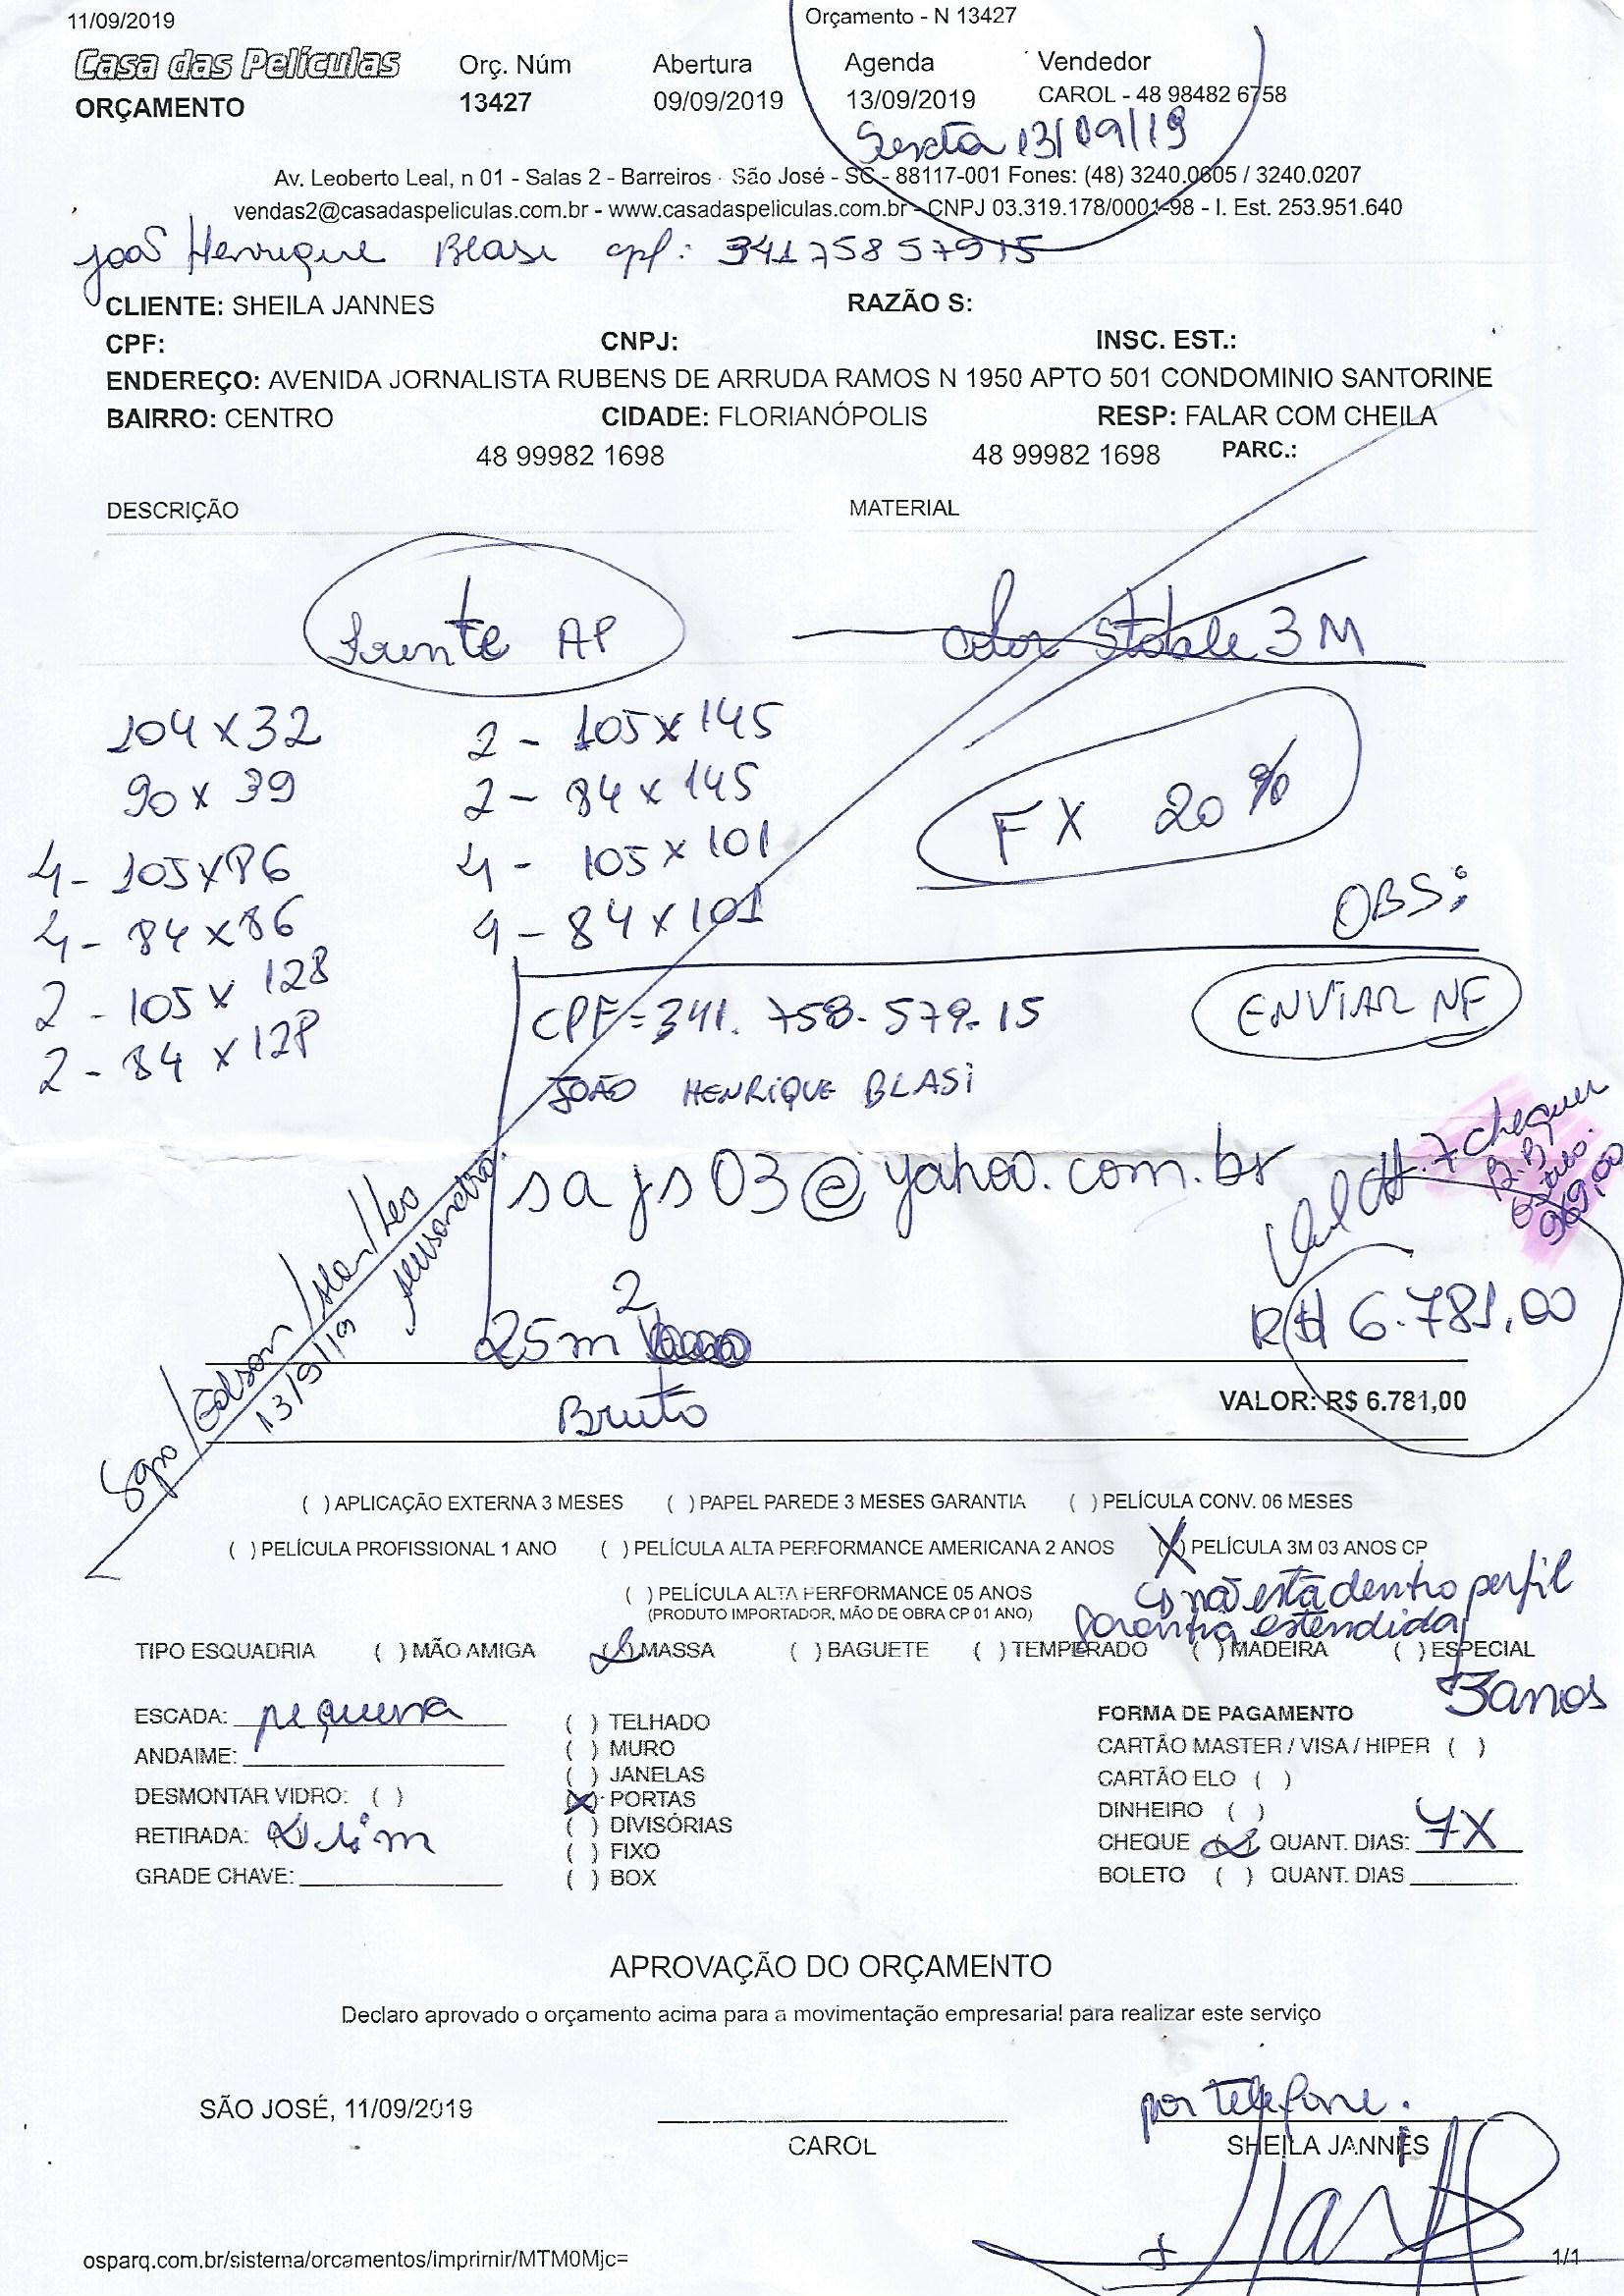 11/09/2019 Orçamento - N 13427
Casa das Películas Orç. Núm Abertura Agenda Vendedor
ORÇAMENTO 13427 09/09/2019 13/09/2019 CAROL - 48 98482 6758
Sexta 13/09/19
Av. Leoberto Leal, n 01 - Salas 2 - Barreiros - São José - SC - 88117-001 Fones: (48) 3240.0605 / 3240.0207
vendas2@casadaspeliculas.com.br - www.casadaspeliculas.com.br - CNPJ 03.319.178/0001-98 - I. Est. 253.951.640
João Henrique Blasi cpf: 34175857915
CLIENTE: SHEILA JANNES RAZÃO S:
CPF: CNPJ: INSC. EST.:
ENDEREÇO: AVENIDA JORNALISTA RUBENS DE ARRUDA RAMOS N 1950 APTO 501 CONDOMINIO SANTORINE
BAIRRO: CENTRO CIDADE: FLORIANÓPOLIS RESP: FALAR COM CHEILA
48 99982 1698 48 99982 1698 PARC.:
DESCRIÇÃO MATERIAL
Frente AP Color Stable 3M
104 x 32 2 - 105 x 145
90 x 39 2 - 84 x 145
FX 20%
4 - 105 x 86 4 - 105 x 101
4 - 84 x 86 4 - 84 x 101
OBS:
2 - 105 x 128
2 - 84 x 128
CPF = 341.758.579.15 ENVIAR NF
JOÃO HENRIQUE BLASI
sajs03@yahoo.com.br
7 cheques
B.B
969,00
/Edson/ /Leo
13/9/19
25m2
R$ 6.781,00
Bruto VALOR: R$ 6.781,00
( ) APLICAÇÃO EXTERNA 3 MESES ( ) PAPEL PAREDE 3 MESES GARANTIA ( ) PELÍCULA CONV. 06 MESES
( ) PELÍCULA PROFISSIONAL 1 ANO ( ) PELÍCULA ALTA PERFORMANCE AMERICANA 2 ANOS (X) PELÍCULA 3M 03 ANOS CP
( ) PELÍCULA ALTA PERFORMANCE 05 ANOS
(PRODUTO IMPORTADOR, MÃO DE OBRA CP 01 ANO)
não está dentro perfil
garantia estendida
TIPO ESQUADRIA ( ) MÃO AMIGA (X) MASSA ( ) BAGUETE ( ) TEMPERADO ( ) MADEIRA ( ) ESPECIAL
3anos
ESCADA: pequena
ANDAIME:
DESMONTAR VIDRO: ( )
RETIRADA: (X) sim
GRADE CHAVE:
( ) TELHADO
( ) MURO
( ) JANELAS
(X) PORTAS
( ) DIVISÓRIAS
( ) FIXO
( ) BOX
FORMA DE PAGAMENTO
CARTÃO MASTER / VISA / HIPER ( )
CARTÃO ELO ( )
DINHEIRO ( )
CHEQUE (X) QUANT. DIAS: 7X
BOLETO ( ) QUANT. DIAS
APROVAÇÃO DO ORÇAMENTO
Declaro aprovado o orçamento acima para a movimentação empresarial para realizar este serviço
SÃO JOSÉ, 11/09/2019 por telefone.
CAROL SHEILA JANNES
osparq.com.br/sistema/orcamentos/imprimir/MTM0Mjc= 1/1